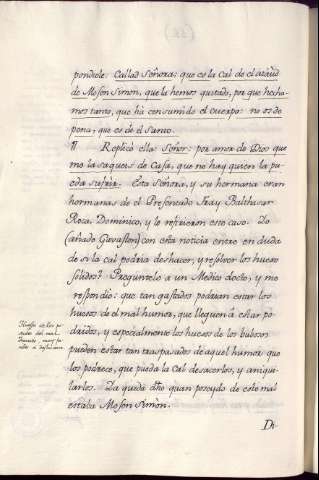 pondiole: Callad Señora; que es la Cal de el ataud
de Moson Simon, que la hemos quitado, por que hecha-
mos tanta, que ha consumido el cuerpo: no os de
pena; que es de el Santo.
¶ Replicó ella: Señor: por amor de Dios que
me la saqueis de Casa, que no hay quien la pu-
eda sufrir. Esta Señora, y su hermana eran
hermanas de el Presentado Fray Balthasar
Roca, Dominico, y le refirieron este caso. Yo
(añade Gavaston) con esta noticia entre en duda
de si la cal podria deshacer, y resolver los huesos
solidos? Preguntelo a un Medico docto, y me
respondio: que tan gastados podrian estar los
huesos de el mal humor, que lleguen á estar po-
dridos, y especialmente los huesos de los bubosos
pueden estar tan traspasados de aquel humor que
los podrece, que pueda la Cal desacerlos, y aniqui-
larlos. Ya queda dho quan poseydo de este mal
estaba Moson Simon.
Di-